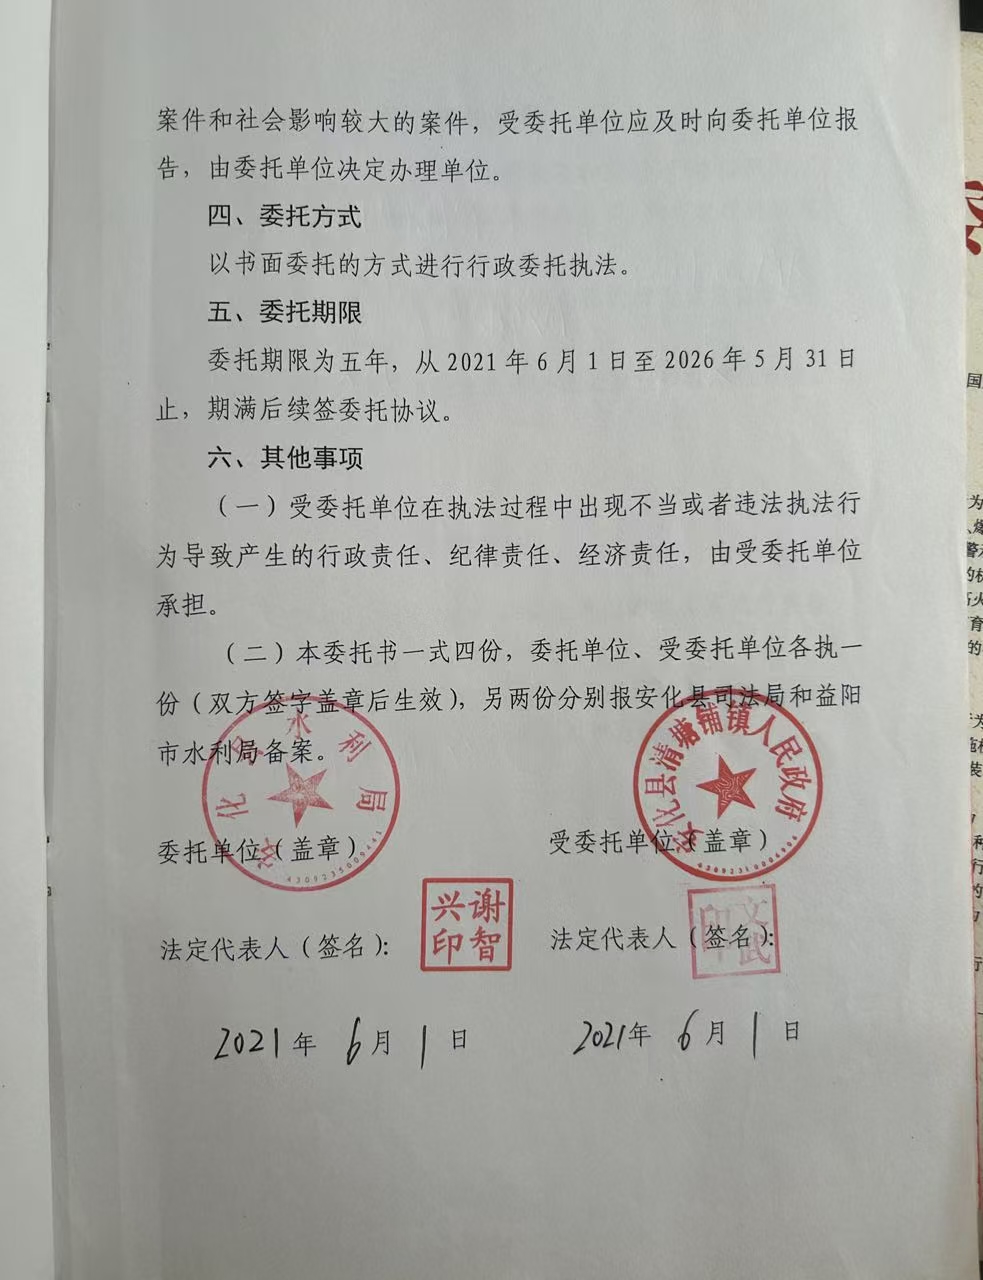 案件和社会影响较大的案件，受委托单位应及时向委托单位报
告，由委托单位决定办理单位。
四、委托方式
以书面委托的方式进行行政委托执法。
五、委托期限
委托期限为五年，从 2021 年 6 月 1 日至 2026 年 5 月 31 日
止，期满后续签委托协议。
六、其他事项
（一）受委托单位在执法过程中出现不当或者违法执法行
为导致产生的行政责任、纪律责任、经济责任，由受委托单位
承担。
（二）本委托书一式四份，委托单位、受委托单位各执一
份（双方签字盖章后生效），另两份分别报安化县司法局和益阳
市水利局备案。
安化县水利局
安化县清塘铺镇人民政府
委托单位（盖章）
受委托单位（盖章）
法定代表人（签名）：
谢智兴印
法定代表人（签名）：
文武印
2021 年 6 月 1 日
2021 年 6 月 1 日